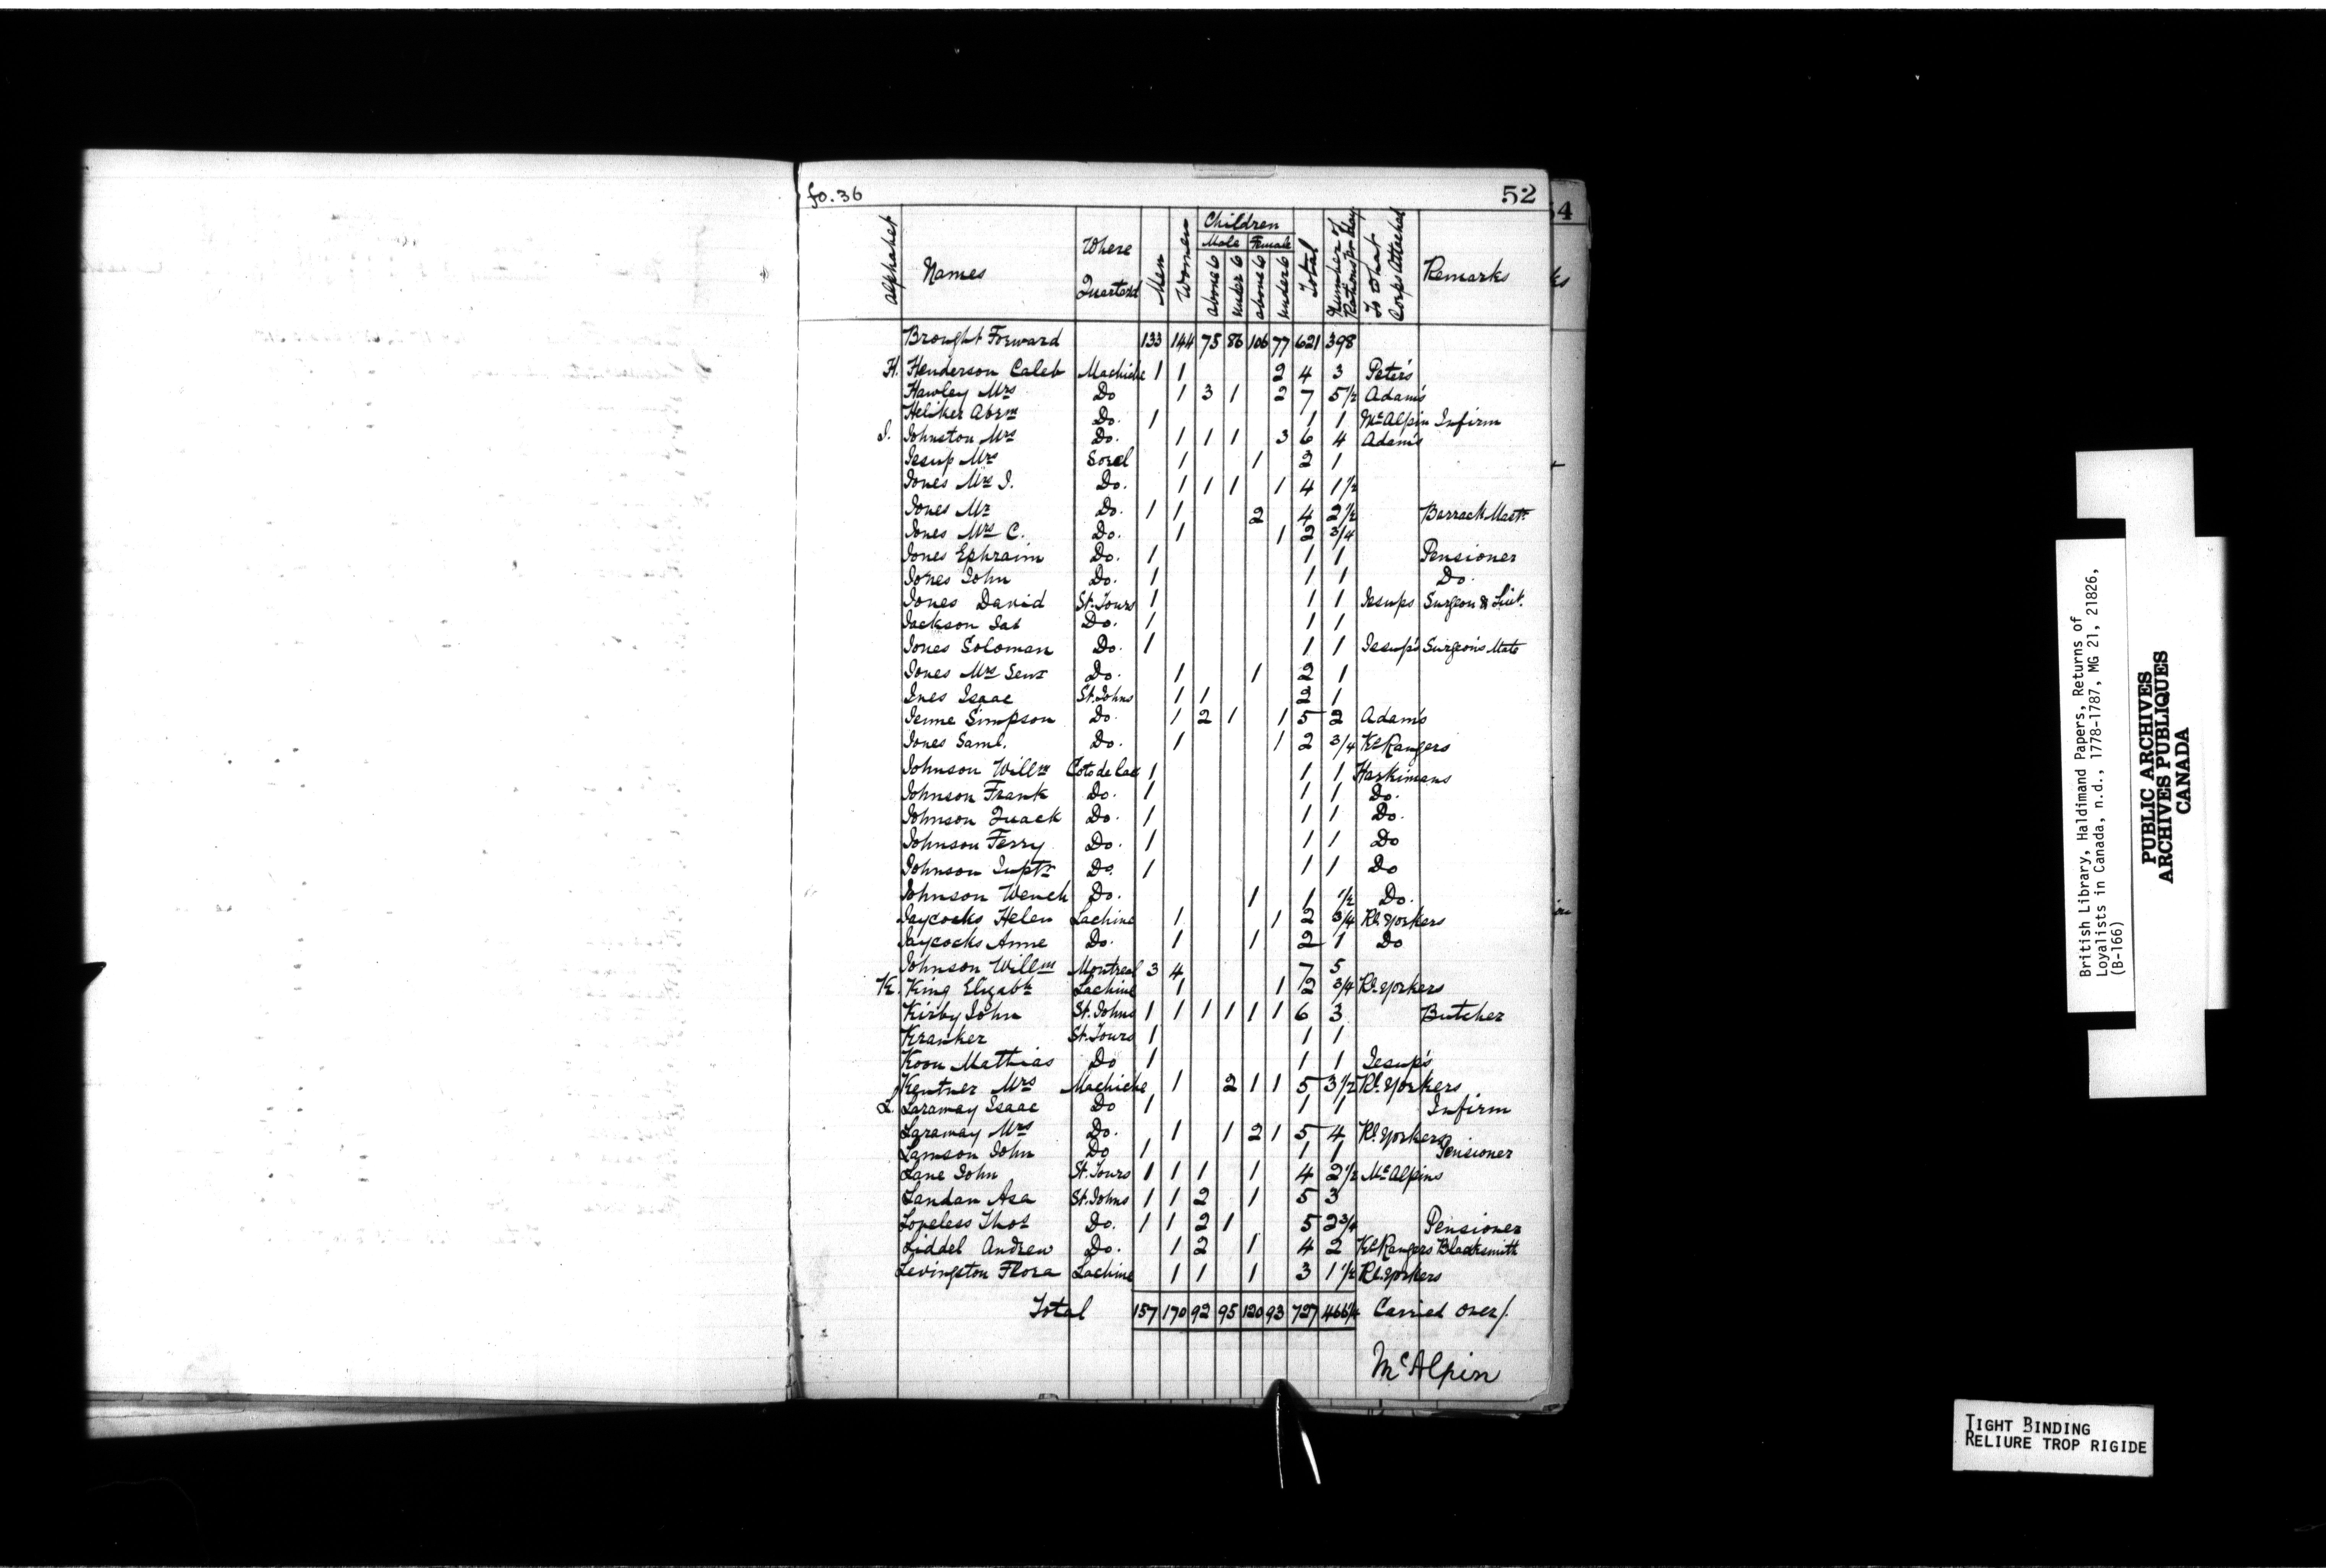 fo. 36
52
54
alphabet Names Where Quartered Men Women Children Male above 6 under 6 Female above 6 under 6 Total Number of Rations Per Day To What Corps Attached Remarks
ks
Brought Forward 133 144 75 86 106 77 621 398
H. Henderson Caleb Machiche 1 1 2 4 3 Peter's
Hawley Mrs Do 1 3 1 2 7 5 1/2 Adam's
Heliker Abrm Do. 1 1 1 McAlpin Infirm
J. Johnston Mrs Do. 1 1 1 3 6 4 Adam's
Jesup Mrs Sorel 1 1 2 1
Jones Mrs J. Do. 1 1 1 1 4 1 1/2
Jones Mr Do. 1 1 2 4 2 1/2 Barrack Mastr
Jones Mrs C. Do. 1 1 2 3/4
Jones Ephraim Do. 1 1 1 Pensioner
Jones John Do. 1 1 1 Do.
Jones David St. Tours 1 1 1 Jesups Surgeon & Lieut.
Jackson Jas Do. 1 1 1
Jones Soloman Do. 1 1 1 Jesup's Surgeon's Mate
Jones Mrs Senr Do. 1 1 2 1
Ines Isaac St. Johns 1 1 2 1
Jenne Simpson Do. 1 2 1 1 5 2 Adam's
Jones Saml. Do. 1 1 2 3/4 Ks Rangers
Johnson Willm Coto de Lac 1 1 1 Harkimans
Johnson Frank Do. 1 1 1 Do.
Johnson Quack Do. 1 1 1 Do.
Johnson Ferry Do. 1 1 1 Do
Johnson Juptr Do. 1 1 1 Do
Johnson Wench Do. 1 1 1/2 Do.
Jaycocks Helen Lachine 1 1 2 3/4 Rl. Yorkers
Jaycocks Anne Do. 1 1 2 1 Do
Johnson Willm Montreal 3 4 7 5
K. King Elizabh Lachine 1 1 2 3/4 Rl. Yorkers
Kirby John St. Johns 1 1 1 1 1 1 6 3 Butcher
Kranker St. Tours 1 1 1
Koon Mathias Do 1 1 1 Jesup's
Kentner Mrs Machiche 1 2 1 1 5 3 1/2 Rl. Yorkers
L. Laramay Isaac Do 1 1 1 Infirm
Laramay Mrs Do. 1 1 2 1 5 4 Rl. Yorkers
Lamson John Do 1 1 1 Pensioner
Lane John St. Tours 1 1 1 1 4 2 1/2 McAlpins
Landan Asa St. Johns 1 1 2 1 5 3
Lopeless Thos Do. 1 1 2 1 5 2 3/4 Pensioner
Liddel Andrew Do. 1 2 1 4 2 Ks Rangers Blacksmith
Levingston Flora Lachine 1 1 1 3 1 1/2 Rl. Yorkers
Total 157 170 92 95 120 93 727 466 1/4 Carried over/.
McAlpin
British Library, Haldimand Papers, Returns of
Loyalists in Canada, n.d., 1778-1787, MG 21, 21826,
(B-166)
PUBLIC ARCHIVES
ARCHIVES PUBLIQUES
CANADA
TIGHT BINDING
RELIURE TROP RIGIDE